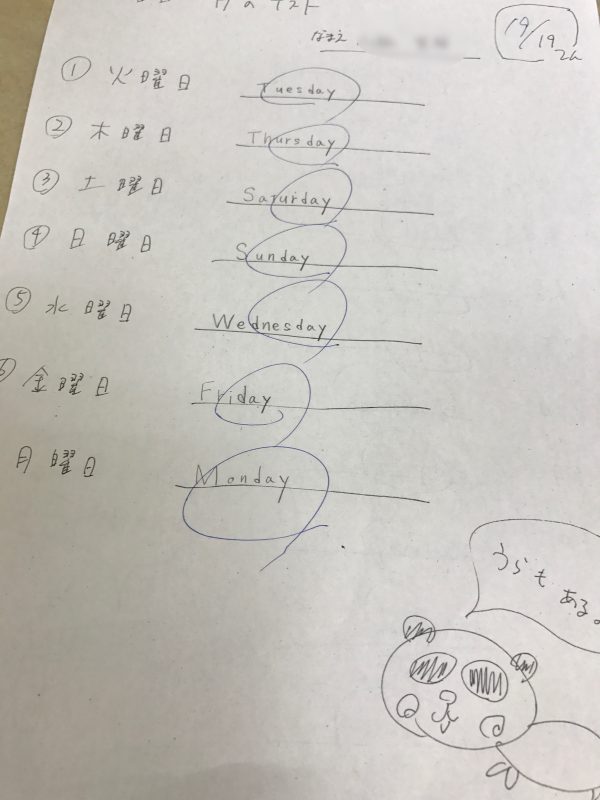 テスト
なまえ
19/19
① 火曜日 Tuesday
② 木曜日 Thursday
③ 土曜日 Saturday
④ 日曜日 Sunday
⑤ 水曜日 Wednesday
⑥ 金曜日 Friday
月曜日 Monday
うらもある。